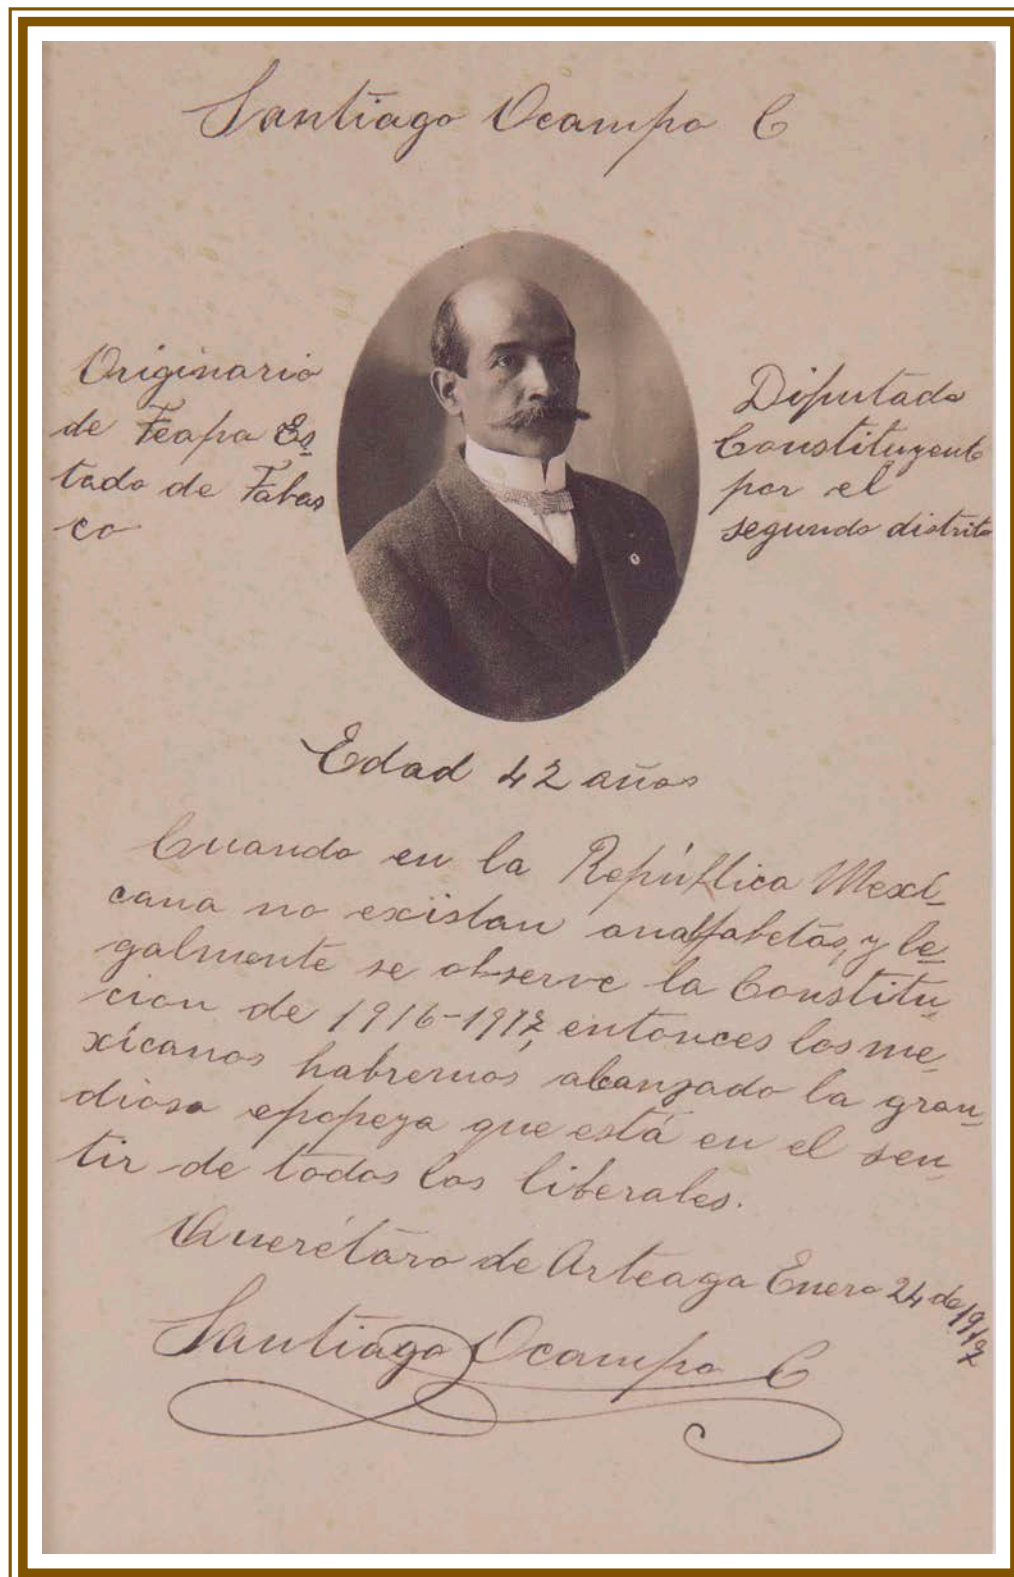 Santiago Ocampo C
Originario
de Teapa Es
tado de Tabas
co
Diputado
Constituyente
por el
segundo distrito
Edad 42 años
Cuando en la República Mexi_
cana no existan analfabetas, y le
galmente se observe la Constitu_
cion de 1916-1917, entonces los me_
xicanos habremos alcanzado la gran_
diosa epopeya que está en el sen_
tir de todos los liberales.
Querétaro de Arteaga Enero 24 de 1917
Santiago Ocampo C